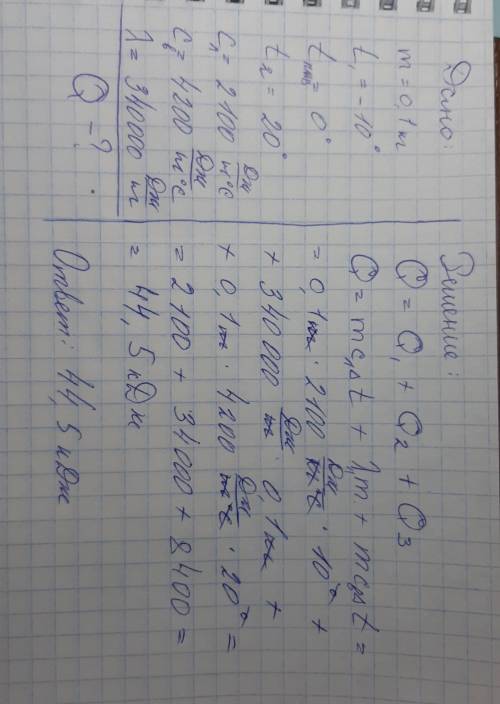 Дано:
m = 0,1 кг
t₁ = -10°
tпл = 0°
t₂ = 20°
C₁ = 2100 Дж/кг°C
Cв = 4200 Дж/кг°C
λ = 340000 Дж/кг
Q - ?
Решение:
Q = Q₁ + Q₂ + Q₃
Q = mc₁Δt + λm + mcвΔt =
= 0,1кг · 2100 Дж/кг°C · 10°C +
+ 340000 Дж/кг · 0,1кг +
+ 0,1кг · 4200 Дж/кг°C · 20°C =
= 2100 + 34000 + 8400 =
= 44,5 кДж
Ответ: 44,5 кДж